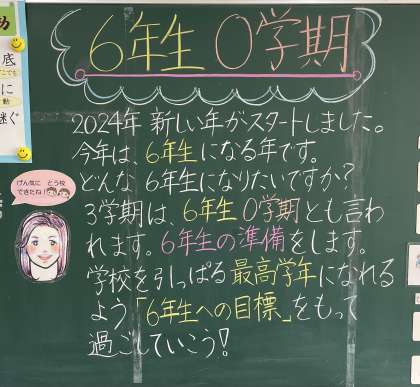 6年生 0学期
2024年 新しい年がスタートしました。
今年は、6年生になる年です。
どんな 6年生になりたいですか?
3学期は、6年生 0学期とも言わ
れます。6年生の準備をします。
学校を引っぱる最高学年になれる
よう「6年生への目標」をもって
過ごしていこう!
げん気に とう校
できたね!
底
に
継ぐ